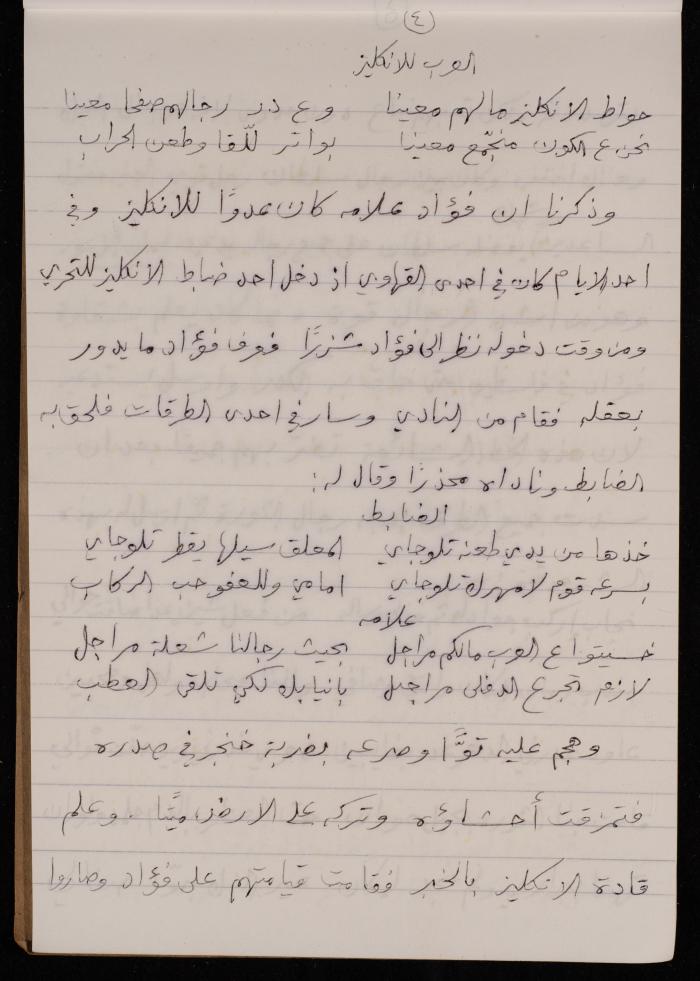 (٤)
العرب للانكليز
حواط الانكليز مالهم معينا وع در رجالهم صفحا معينا
نحن ع الكون منجمّع معينا بواتر للّقا وطعن الحراب
وذكرنا ان فؤاد علامه كان عدوًا للانكليز وفي
احد الايام كان في احدى القهاوي اذ دخل احد ضباط الانكليز للتحري
ومن وقت دخوله نظر الى فؤاد شزرًا فعرف فؤاد ما يدور
بعقله فقام من النادي وسار في احدى الطرقات فلحق به
الضابط وناداه محذرًا وقال له:
الضابط
خذها من يدي طعنه تلوجاي المعلق سيلها يقظ تلوجاي
بسرعه قوم لا مهرك تلوجاي امامي وللعفو حب الركاب
علامه
خسيتوا ع العرب مالكم مراجل بحيث رجالنا شعلة مراجل
لازم تجرع الدفلى مراجل بانيابك نكي تلقى العطب
وهجم عليه توًّا وصرعه بضربة خنجر في صدره
فتمزقت أحشاؤه وتركه على الارض ميتًا. وعلم
قادة الانكليز بالخبر فقامت قيامتهم على فؤاد وصاروا